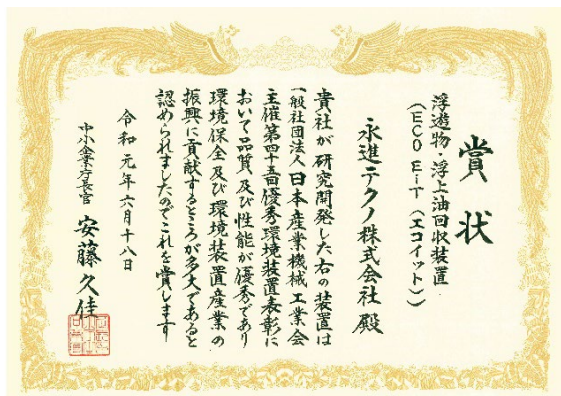 賞状
浮遊物・浮上油回収装置
(ECO EiT(エコイット))
永進テクノ株式会社 殿
貴社が研究開発した右の装置は
一般社団法人日本産業機械工業会
主催第四十五回優秀環境装置表彰に
おいて品質及び性能が優秀であり
環境保全及び環境装置産業の
振興に貢献するところが多大であると
認められましたのでこれを賞します
令和元年六月十八日
中小企業庁長官 安藤久佳